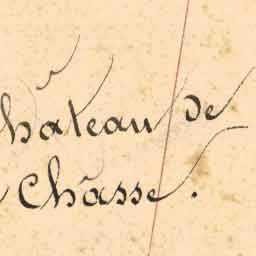 hateau de
Châsse.